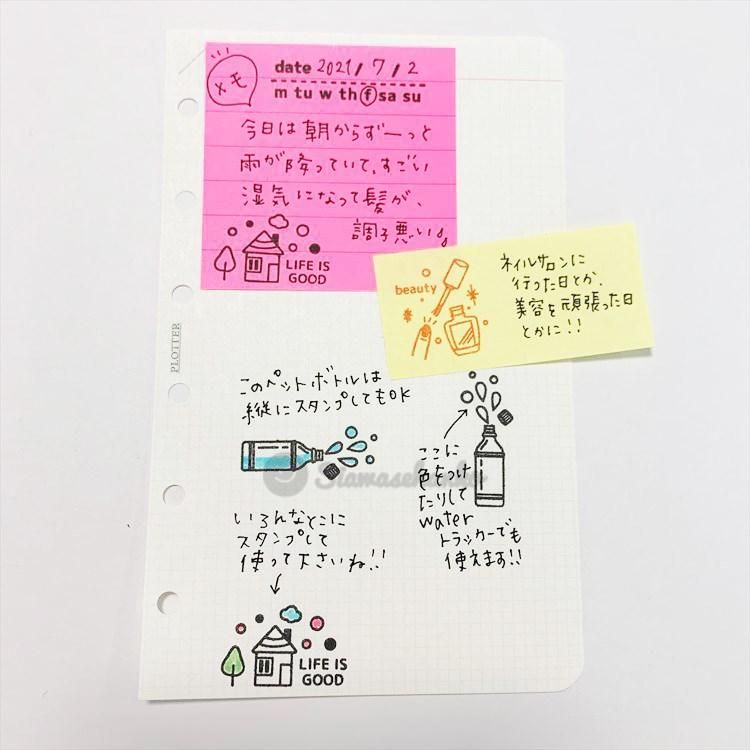 メモ
date 2021/7/2
m tu w th f sa su
今日は朝からずーっと
雨が降っていて、すごい
湿気になって髪が、
調子悪い。。
LIFE IS
GOOD
beauty
ネイルサロンに
行った日とか、
美容を頑張った日
とかに!!
PLOTTER
このペットボトルは
縦にスタンプしてもOK
ここに
色をつけ
たりして
water
トラッカーでも
使えます!!
Siawasehanko
いろんなとこに
スタンプして
使って下さいね!!
LIFE IS
GOOD